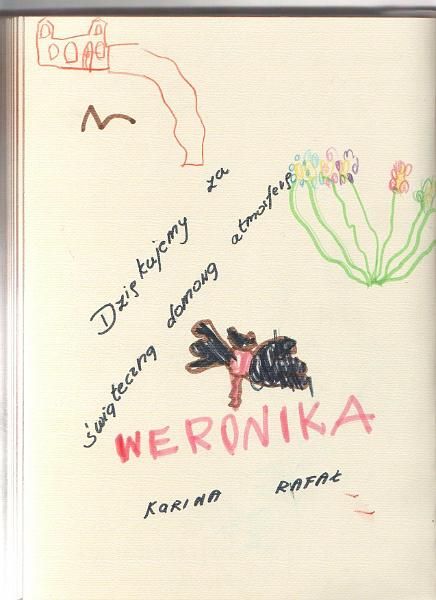 Dziękujemy za
świąteczną domową atmosferę
WERONIKA
KARINA RAFAŁ